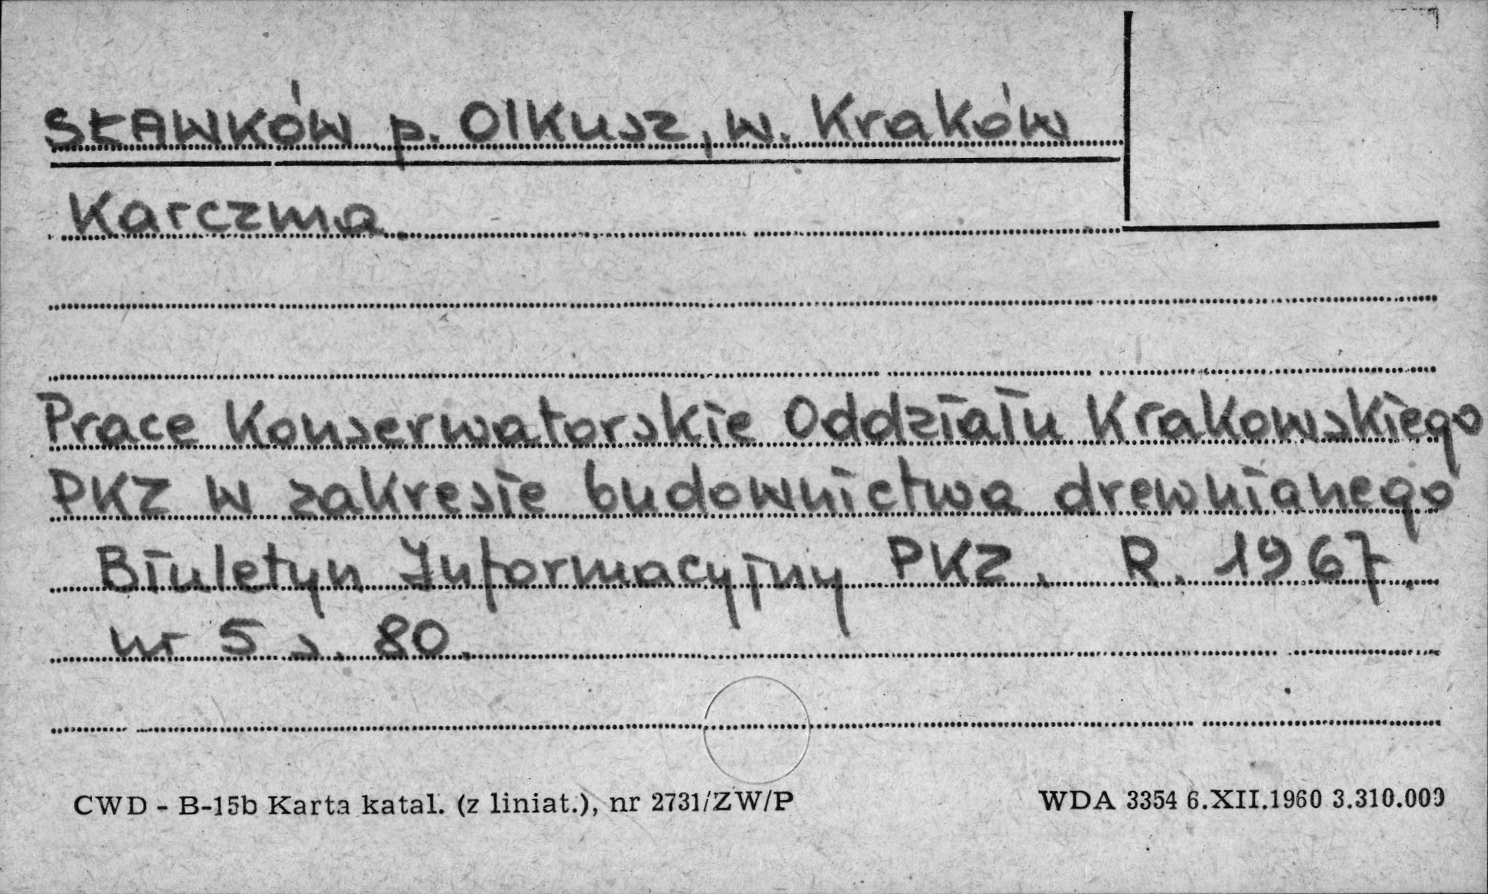 SŁAWKÓW p. Olkusz, w. Kraków
Karczma.
Prace Konserwatorskie Oddziału Krakowskiego
PKZ w zakresie budownictwa drewnianego
Biuletyn Informacyjny PKZ. R. 1967.
nr 5 s. 80.
CWD - B-15b Karta katal. (z liniat.), nr 2731/ZW/P
WDA 3354 6.XII.1960 3.310.000